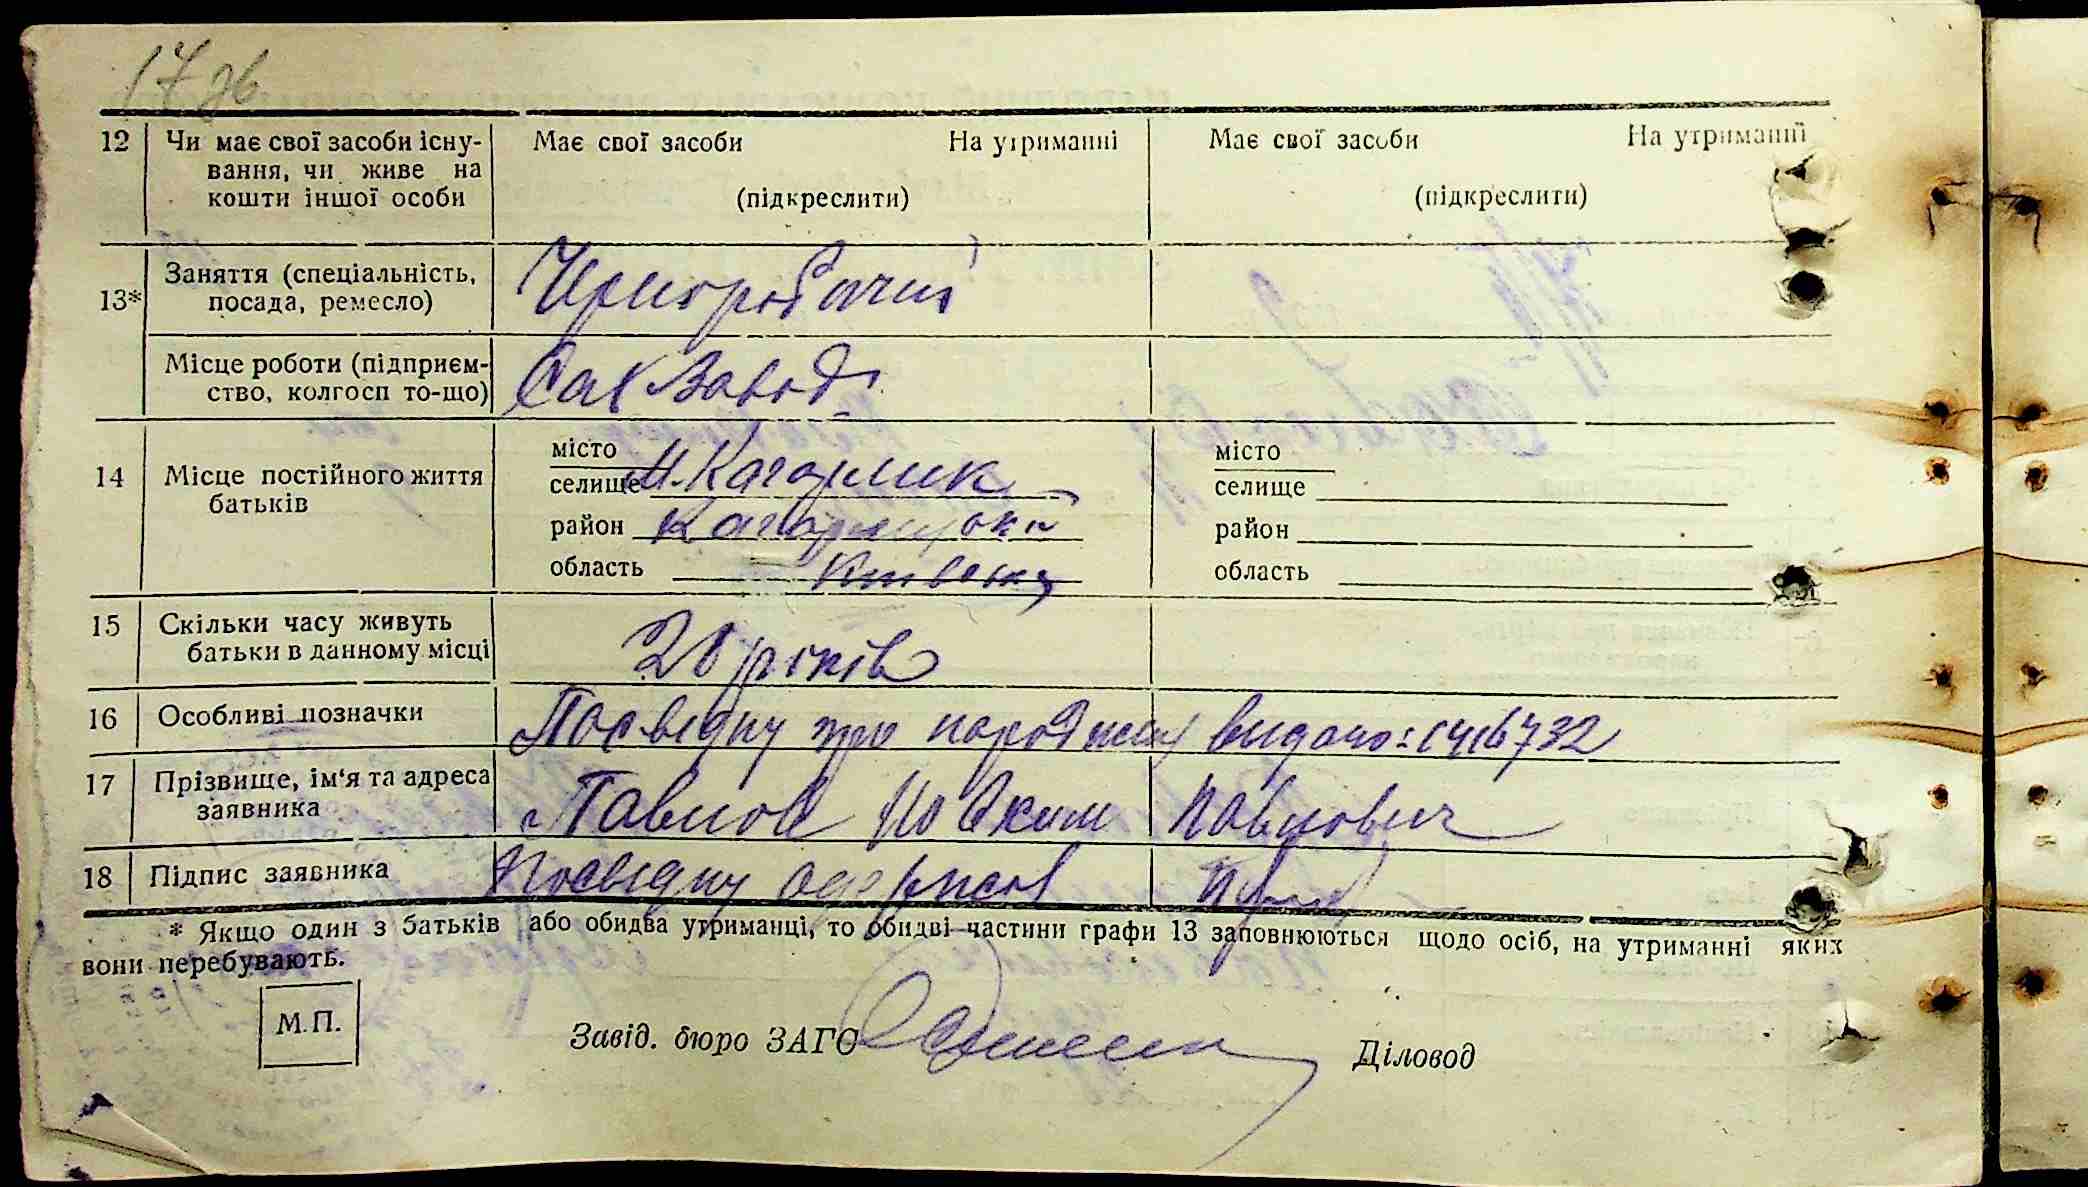 17 зв
12 Чи має свої засоби існу- Має свої засоби На утриманні Має свої засоби На утриманні
вання, чи живе на
кошти іншої особи (підкреслити) (підкреслити)
Заняття (спеціальність, Чорноробочий
13* посада, ремесло)
Місце роботи (підприєм- Сах Завод
ство, колгосп то-що)
місто місто
14 Місце постійного життя селище м. Кагарлик селище
батьків район Кагарлицький район
область Київська область
15 Скільки часу живуть 20 років
батьки в данному місці
16 Особливі позначки Посвідку про народження видано: 1416732
17 Прізвище, ім'я та адреса Павлов Йоаким Павлович
заявника
18 Підпис заявника Посвідку одержав
* Якщо один з батьків або обидва утриманці, то обидві частини графи 13 заповнюються щодо осіб, на утриманні яких
вони перебувають.
М.П.
Завід. бюро ЗАГС Діловод